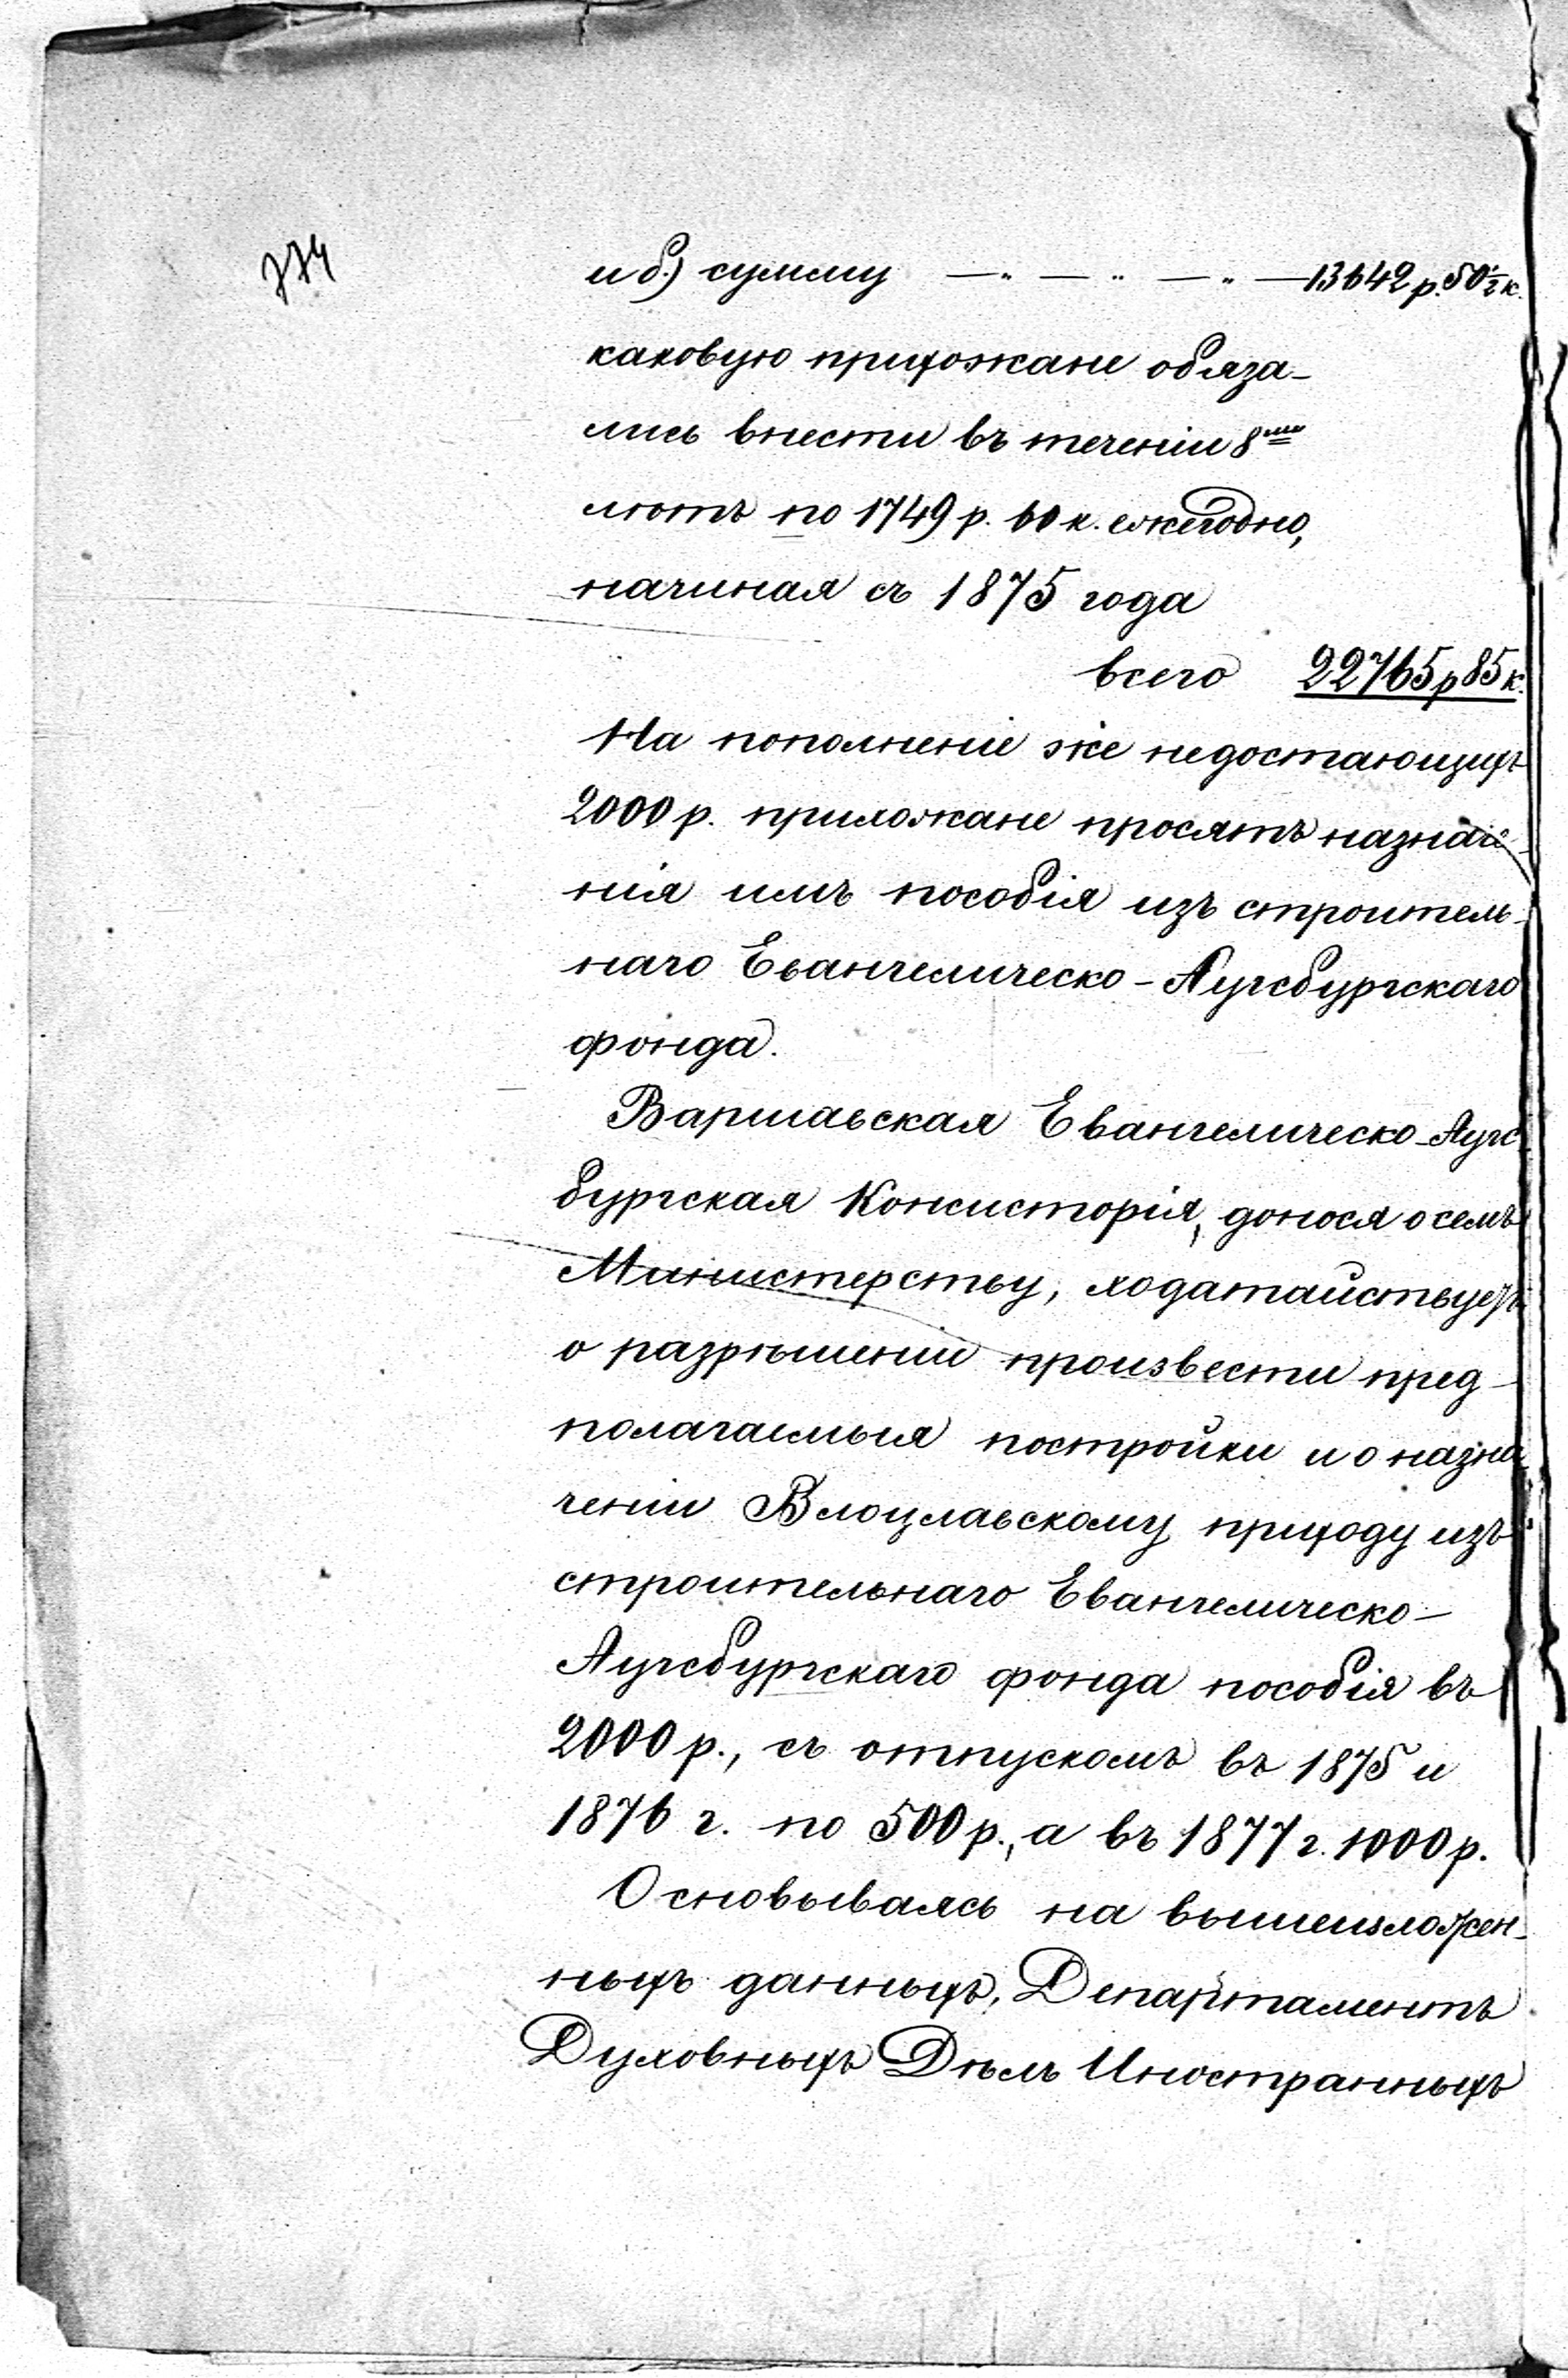 774
и б.) сумму — „ — „ — „ — 13642 р. 50½ к.
каковую прихожане обяза-
лись внести въ теченіи 8ми
лѣтъ по 1749 р. 60 к. ежегодно,
начиная съ 1875 года
всего 22765 р 85 к.
На пополненіе же недостающихъ
2000 р. прихожане просятъ назначе-
нія имъ пособія изъ строитель-
наго Евангелическо-Аугсбургскаго
фонда.
Варшавская Евангелическо-Аугс-
бургская Консисторія, донося о семъ
Министерству, ходатайствуетъ
о разрѣшеніи произвести пред-
полагаемыя постройки и о назна-
ченіи Влоцлавскому приходу изъ
строительнаго Евангелическо-
Аугсбургскаго фонда пособія въ
2000 р., съ отпускомъ въ 1875 и
1876 г. по 500 р., а въ 1877 г. 1000 р.
Основываясь на вышеизложен-
ныхъ данныхъ, Департаментъ
Духовныхъ Дѣлъ Иностранныхъ